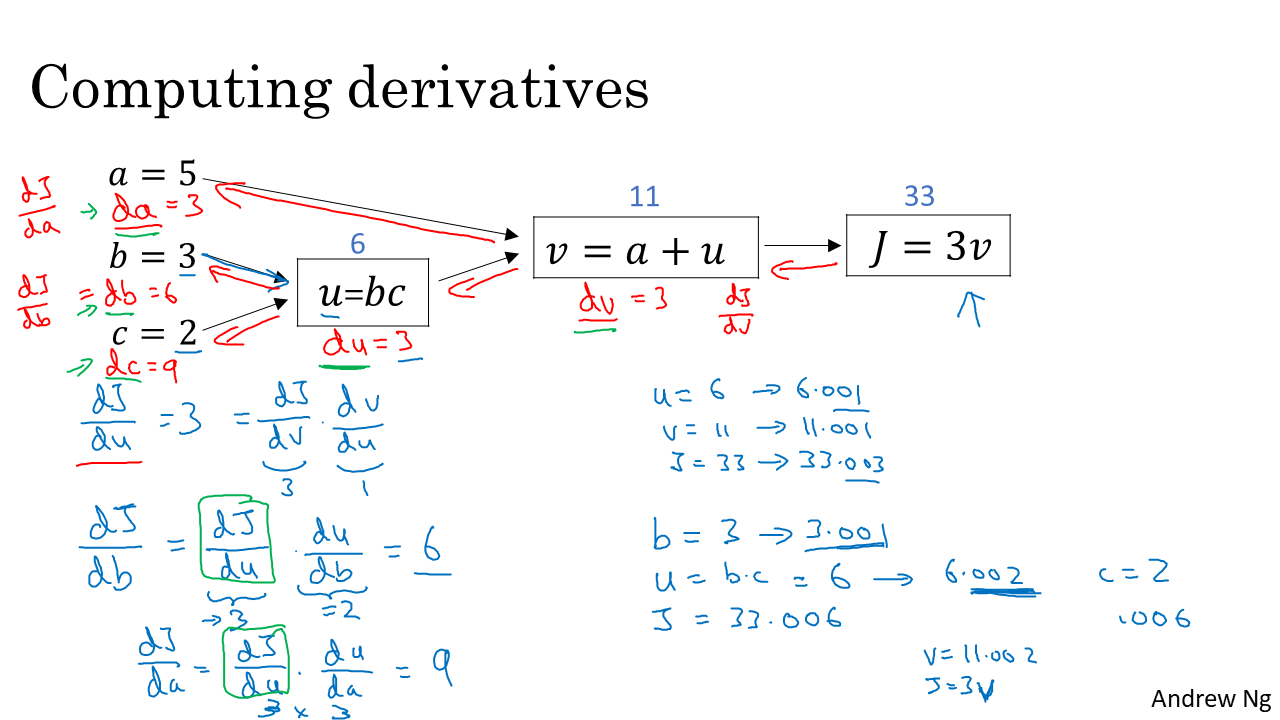 Computing derivatives
a = 5
dJ/da → da = 3
b = 3
dJ/db = db = 6
c = 2
→ dc = 9
6
u=bc
du = 3
11
v = a + u
dv = 3 dJ/dv
33
J = 3v
↑
dJ/du = 3 = dJ/dv · dv/du
3 1
dJ/db = dJ/du · du/db = 6
→ 3 = 2
dJ/da = dJ/du · du/da = 9
3 × 3
u = 6 → 6.001
v = 11 → 11.001
J = 33 → 33.003
b = 3 → 3.001
u = b·c = 6 → 6.002 c = 2
J = 33.006 .006
v = 11.002
J = 3v
Andrew Ng